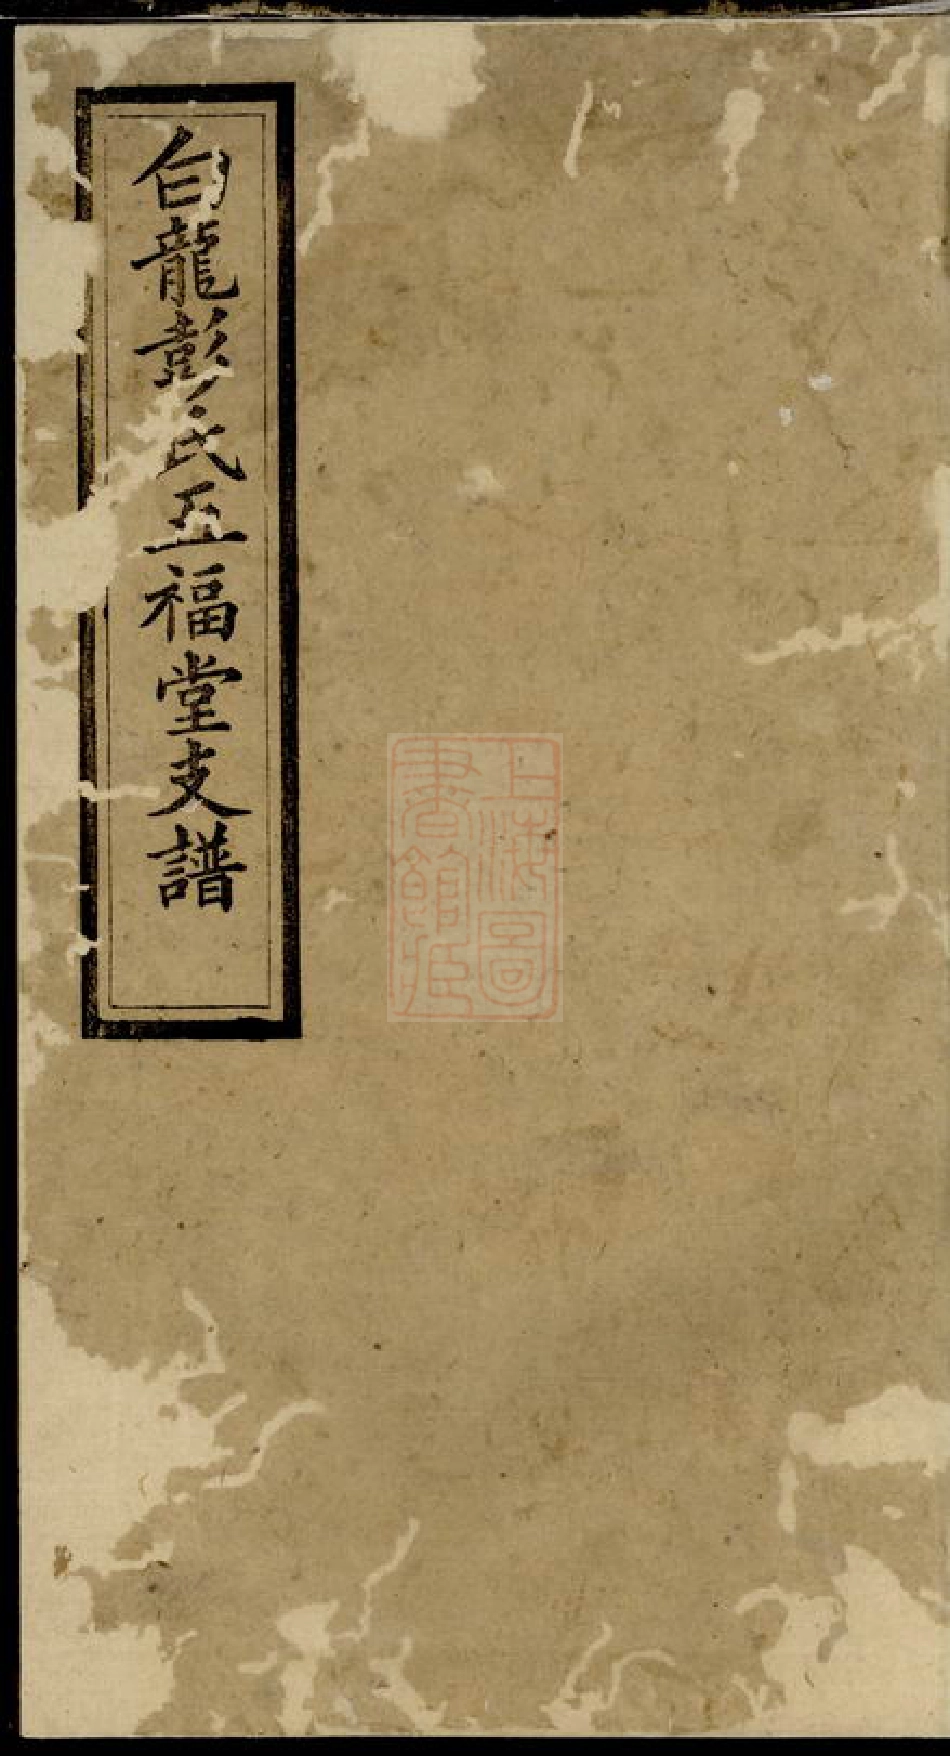 白龍彭氏五福堂支譜
上海圖
書館藏